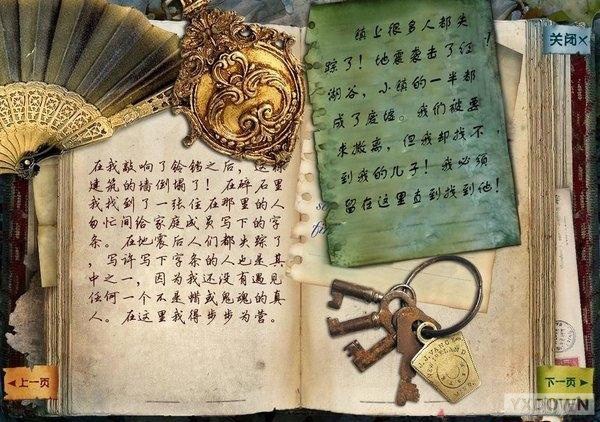 关闭×
镇上很多人都失
踪了！地震袭击了红
湖谷，小镇的一半都
成了废墟。我们被要
求撤离，但我却找不
到我的儿子！我必须
留在这里直到找到他！
在我敲响了铃铛之后，这
建筑的墙倒塌了！在碎石里
我找到了一张住在那里的人
匆忙间给家庭成员写下的字
条。在地震后人们都失踪了
，写许写下字条的人也是其
中之一，因为我还没有遇见
任何一个不是蜡或鬼魂的真
人。在这里我得步步为营。
上一页
下一页
YXDOWN